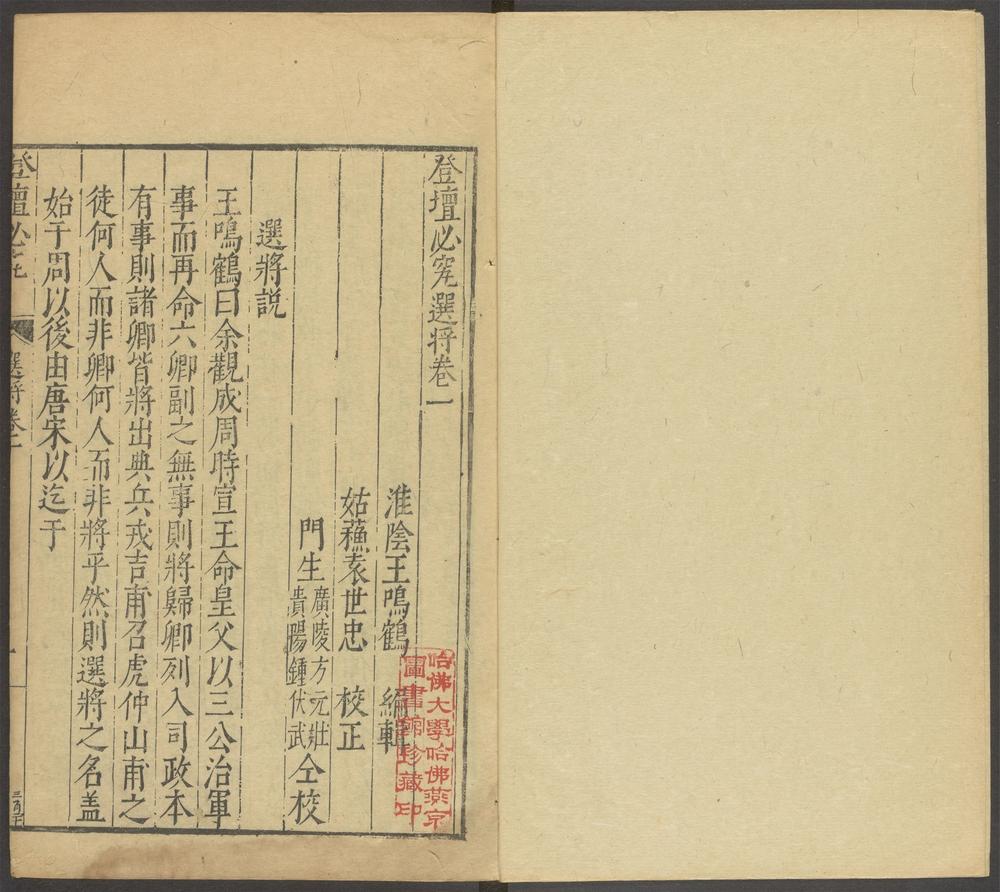 登壇必究選将卷一
淮陰王鳴鶴 編輯
姑蘓袁世忠 校正
門生廣陵方元壯貴陽鍾伏武仝校
選將説
王鳴鶴曰余觀成周時宣王命皇父以三公治軍
事而再命六卿副之無事則將歸卿列入司政本
有事則諸卿皆將出典兵戎吉甫召虎仲山甫之
徒何人而非卿何人而非將乎然則選將之名盖
始于周以後由唐宋以迄于
登壇必究 選將卷一
哈佛大學哈佛燕京
圖書館珍藏印